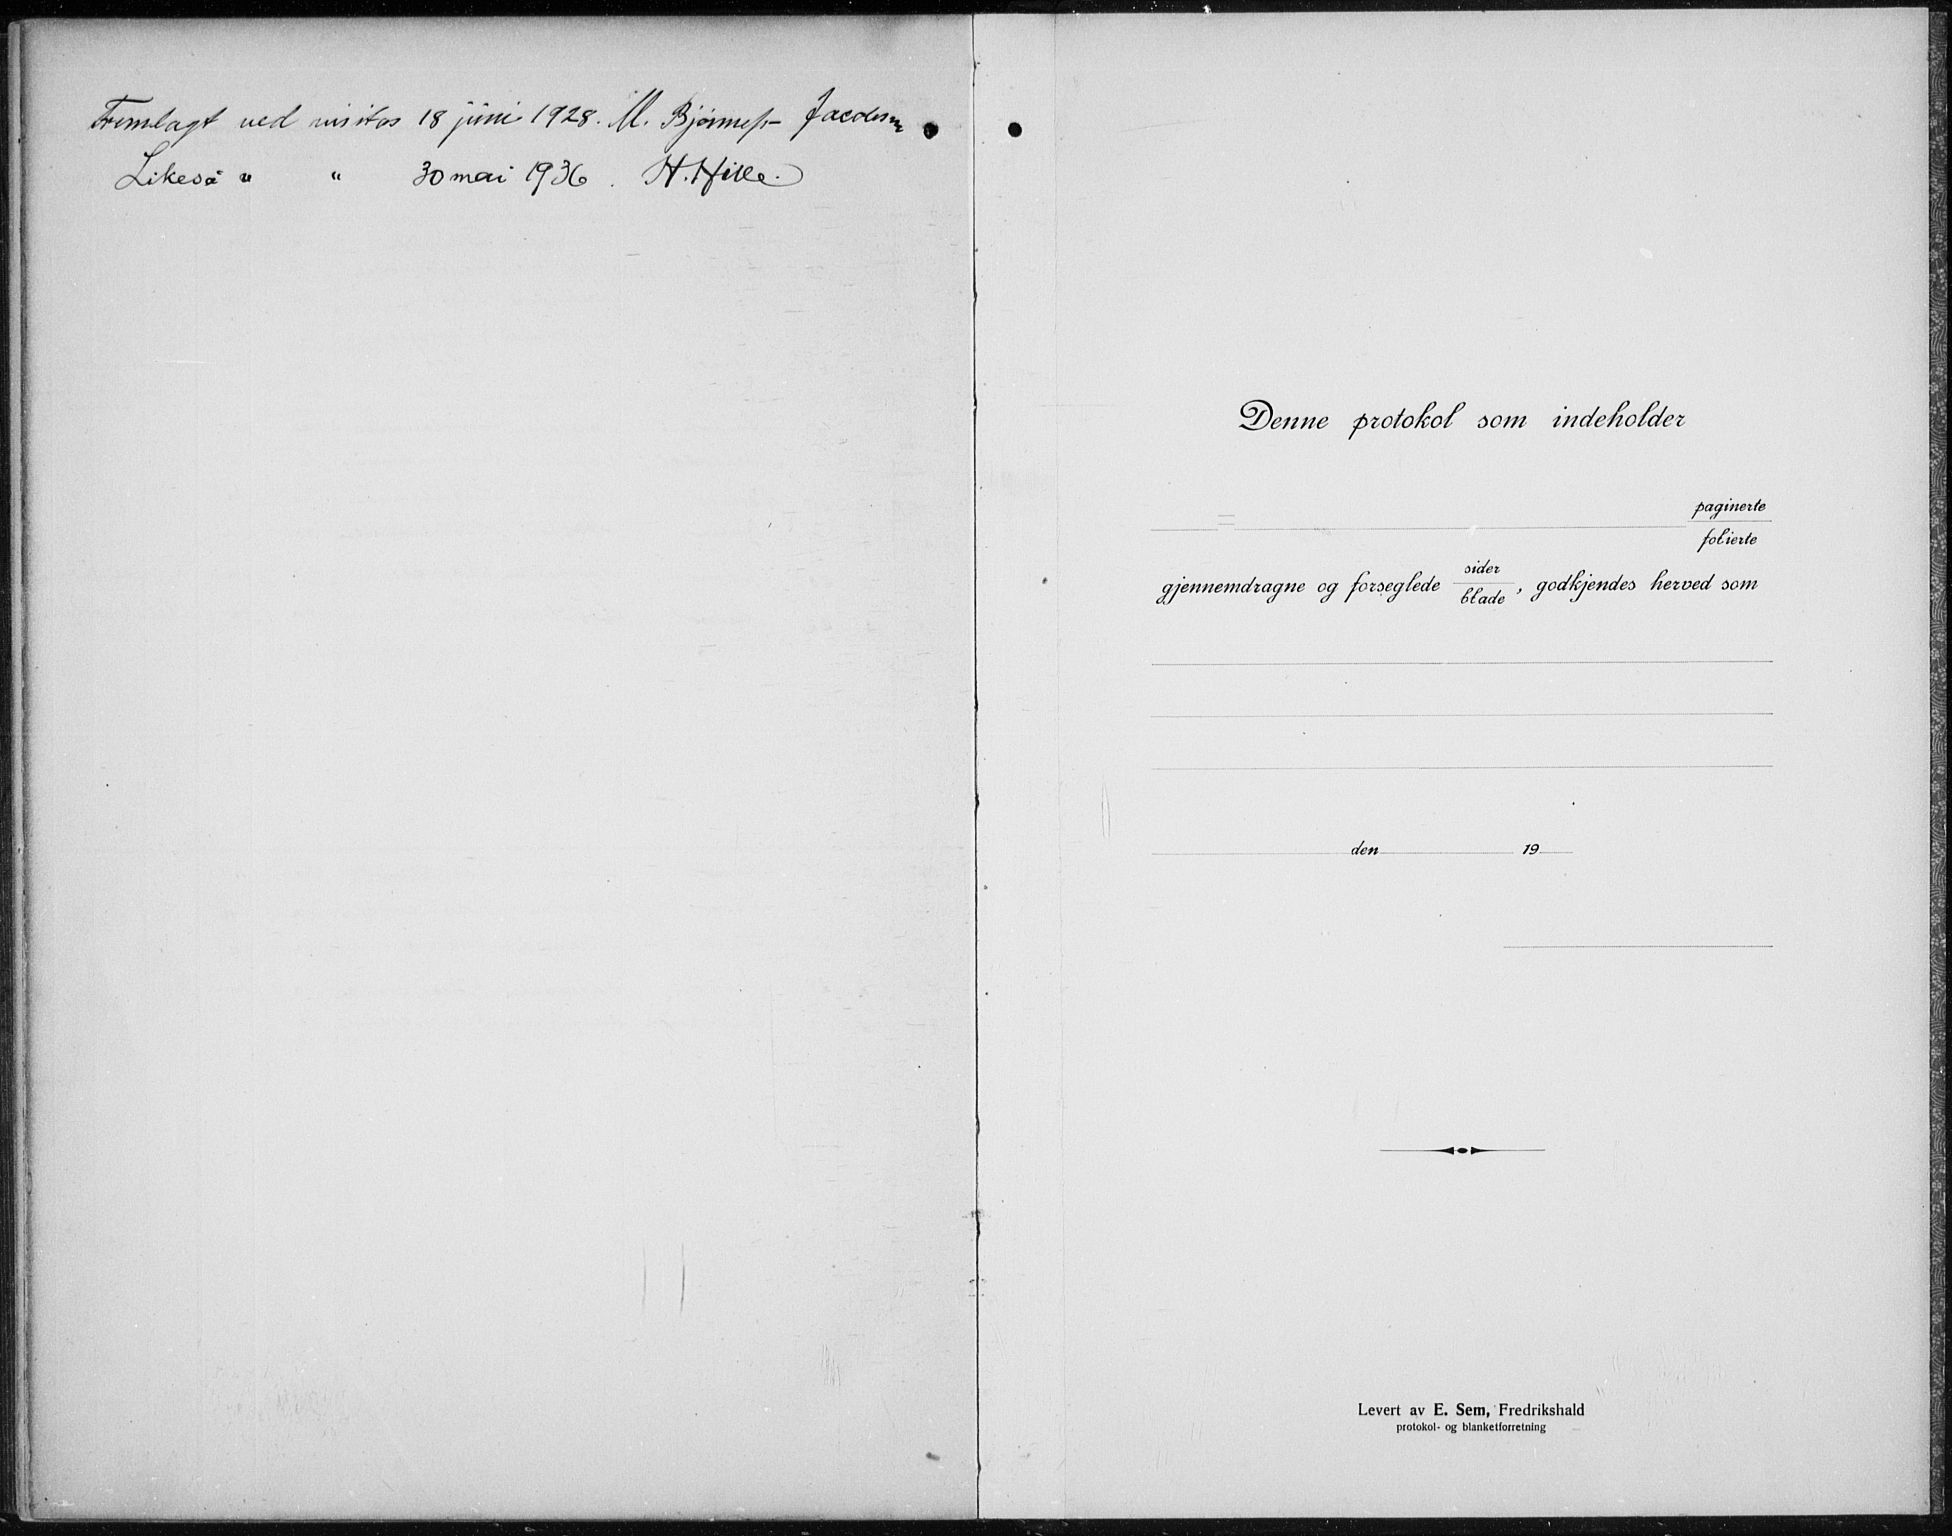 Fremlagt ved visitas 18 juni 1928. M. Bjønness-Jacobsen
Likeså " " 30 mai 1936. H. Hille.
Denne protokol som indeholder
=
paginerte
folierte
gjennemdragne og forseglede sider
blade, godkjendes herved som
den 19
Levert av E. Sem, Fredrikshald
protokol- og blanketforretning